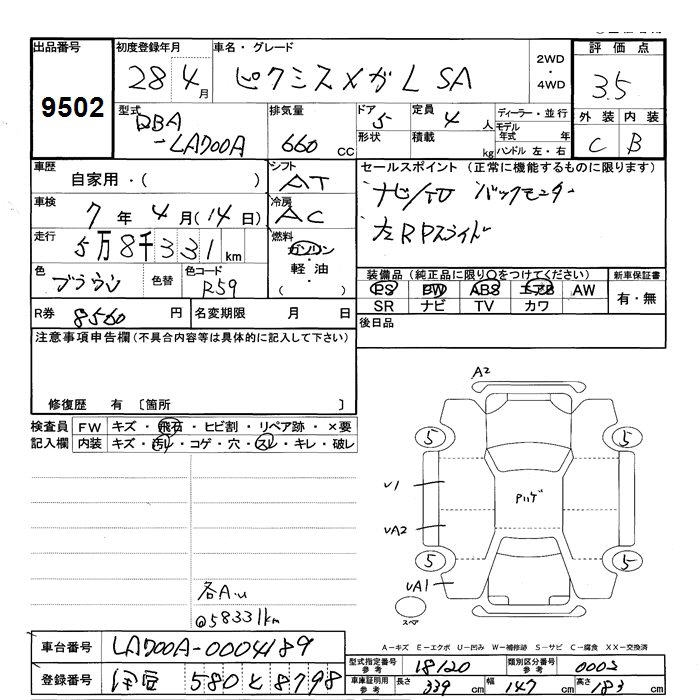 出品番号 初度登録年月 車名・グレード 2WD ・ 4WD 評価点
9502 28 4月 ピクシスメガ L SA 3.5
型式 DBA -LA700A 排気量 660 cc ドア 5 定員 4 人 ディーラー・並行
形状 積載 kg モデル年式 年 ハンドル 左・右
外装 内装
C B
車歴 自家用・( ) シフト AT セールスポイント (正常に機能するものに限ります)
車検 7年 4月(14日) 冷房 AC ナビ/TV バックモニター
走行 5万8千331km 燃料 ガソリン・軽油・( ) 左RPスライド
色 ブラウン 色替 色コード R59
装備品 (純正品に限り○をつけてください) 新車保証書
PS PW ABS エアB AW 有・無
SR ナビ TV カワ
R券 8560 円 名変期限 月 日 後日品
注意事項申告欄 (不具合内容等は具体的に記入して下さい)
修復歴 有 〔箇所 〕
検査員 FW キズ・飛石・ヒビ割・リペア跡・×要
記入欄 内装 キズ・汚レ・コゲ・穴・スレ・キレ・破レ
A2
5 5
U1
Pハゲ
UA2
5 5
UA1
スペア
各A.U
@58331km
A-キズ E-エクボ U-凹み W-補修跡 S-サビ C-腐食 XX-交換済
車台番号 LA700A-0004189
登録番号 伊豆 580 と 8798
型式指定番号 参考 18120 類別区分番号 参考 0002
車庫証明用 参考 長さ 339 cm 幅 147 cm 高さ 183 cm